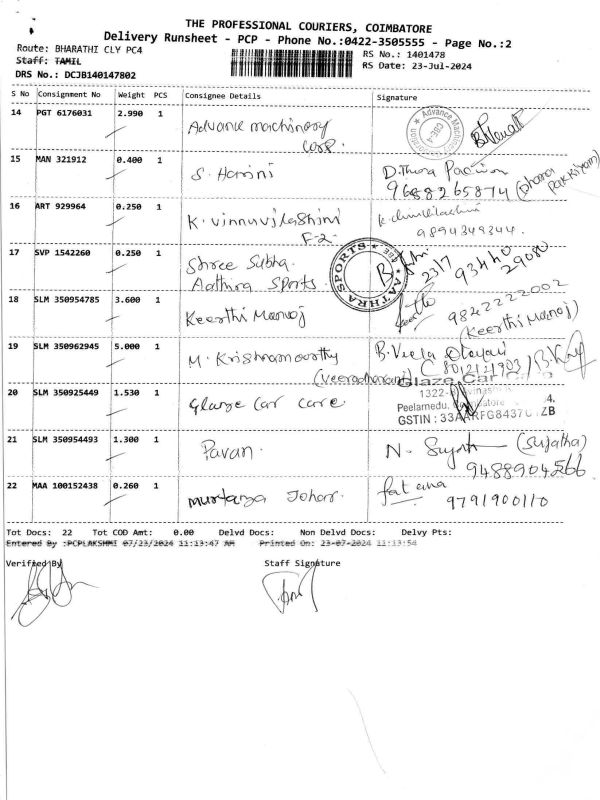 THE PROFESSIONAL COURIERS, COIMBATORE
Delivery Runsheet - PCP - Phone No.:0422-3505555 - Page No.:2
Route: BHARATHI CLY PC4
RS No.: 1401478
Staff: TAMIL
RS Date: 23-Jul-2024
DRS No.: DCJB140147802
S No Consignment No Weight PCS Consignee Details Signature
14 PGT 6176031 2.990 1 Advance machinery
Corp.
15 MAN 321912 0.400 1 S. Harini
9688265874
16 ART 929964 0.250 1 K. vinnuvilashini
F-2
9894349344
17 SVP 1542260 0.250 1 Shree Subha
Aathira Sports
AATHRA SPORTS
2317
93440
29080
18 SLM 350954785 3.600 1 Keerthi Manoj
9842222002
(Keerthi Manoj)
19 SLM 350962945 5.000 1 M. Krishnamoorthy
(Veeradharani)
8012121903
20 SLM 350925449 1.530 1 Glaze car care
Glaze Car
1322
Peelamedu,
GSTIN :
21 SLM 350954493 1.300 1 Pavan.
N. (Sujatha)
9488904566
22 MAA 100152438 0.260 1 murtaza Johar.
9791900110
Tot Docs: 22 Tot COD Amt: 0.00 Delvd Docs: Non Delvd Docs: Delvy Pts:
Entered By :PCPLAKSHMI 07/23/2024 11:13:47 AM Printed On: 23-07-2024 11:13:54
Verified By Staff Signature